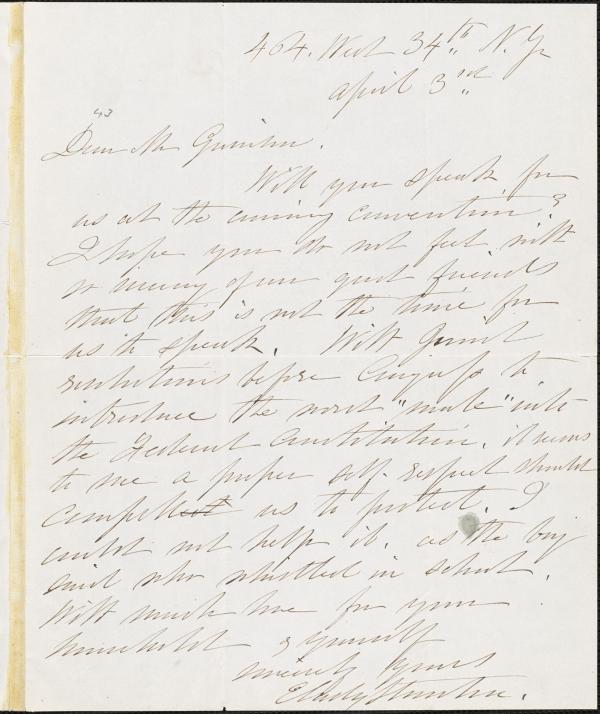 464. West 34th N.Y.
April 3rd
43
Dear Mr Garrison.
Will you speak for
us at the coming convention?
I hope you do not feel with
so many of our good friends
that this is not the time for
us to speak. With Joint
resolutions before Congress to
introduce the word "male" into
the Federal Constitution, it seems
to me a proper self-respect should
compel us to protest. I
could not help it, as the boy
said who whistled in school.
With much love for your
household & yourself
sincerely yours
E Cady Stanton.